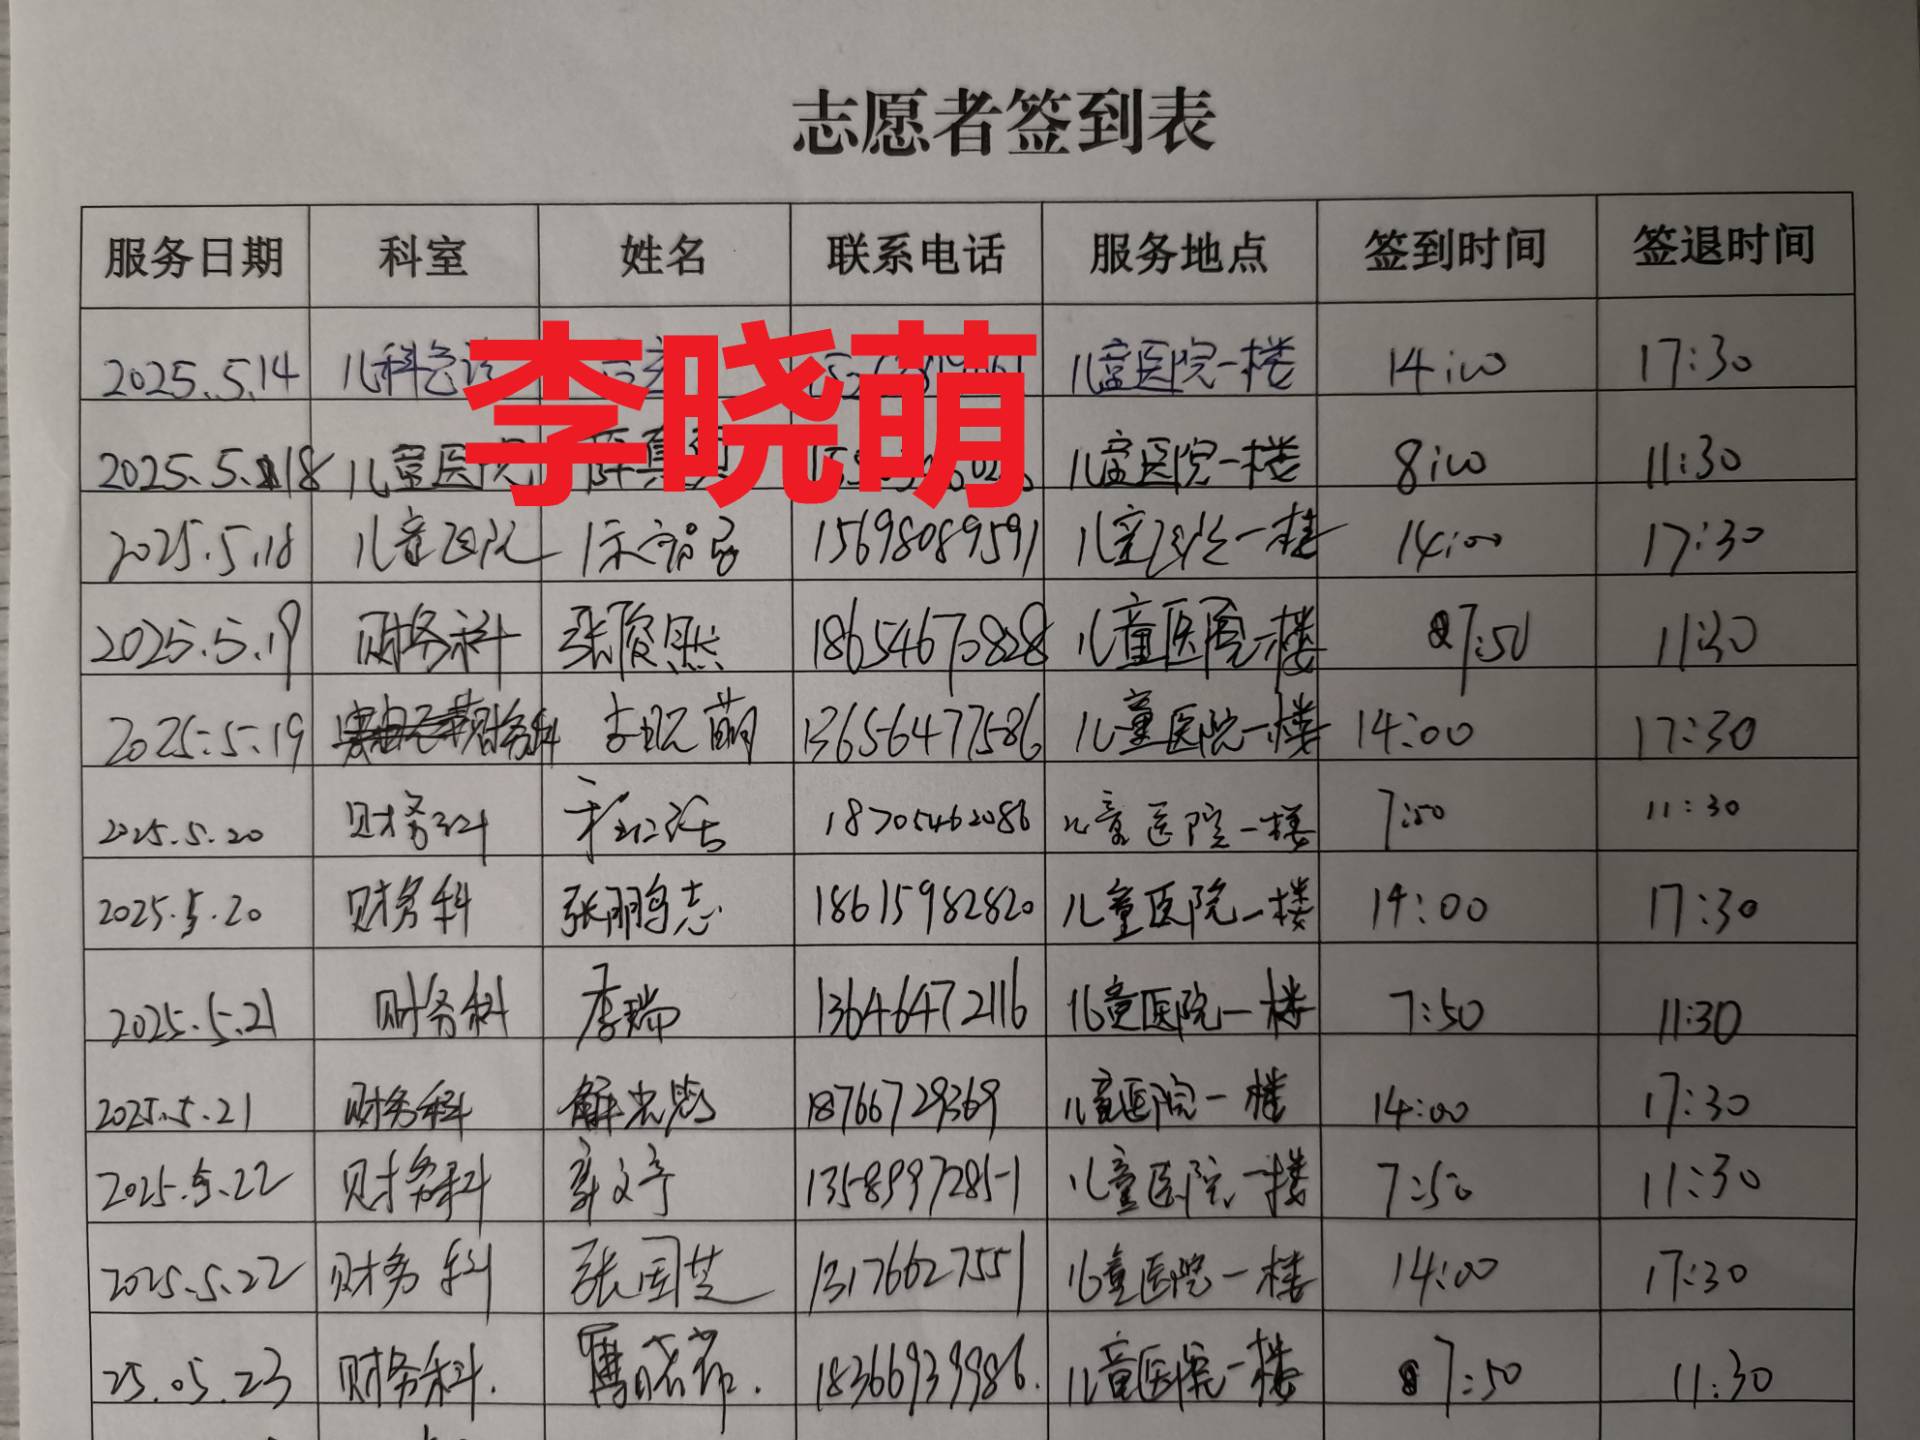 志愿者签到表
服务日期 科室 姓名 联系电话 服务地点 签到时间 签退时间
李晓萌
2025.5.14 儿科 儿童医院一楼 14:00 17:30
2025.5.18 儿童医院 儿童医院一楼 8:00 11:30
2025.5.18 儿童医院 15698089591 儿童医院一楼 14:00 17:30
2025.5.19 财务科 张俊熙 18654670828 儿童医院一楼 7:50 11:30
2025.5.19 财务科 李晓萌 13656477586 儿童医院一楼 14:00 17:30
2025.5.20 财务科 18705462086 儿童医院一楼 7:50 11:30
2025.5.20 财务科 张鹏志 18615982820 儿童医院一楼 14:00 17:30
2025.5.21 财务科 李瑞 13646472116 儿童医院一楼 7:50 11:30
2025.5.21 财务科 18766729369 儿童医院一楼 14:00 17:30
2025.5.22 财务科 13589972851 儿童医院一楼 7:50 11:30
2025.5.22 财务科 张国芝 13176627551 儿童医院一楼 14:00 17:30
25.05.23 财务科. 18366939986. 儿童医院一楼 7:50 11:30